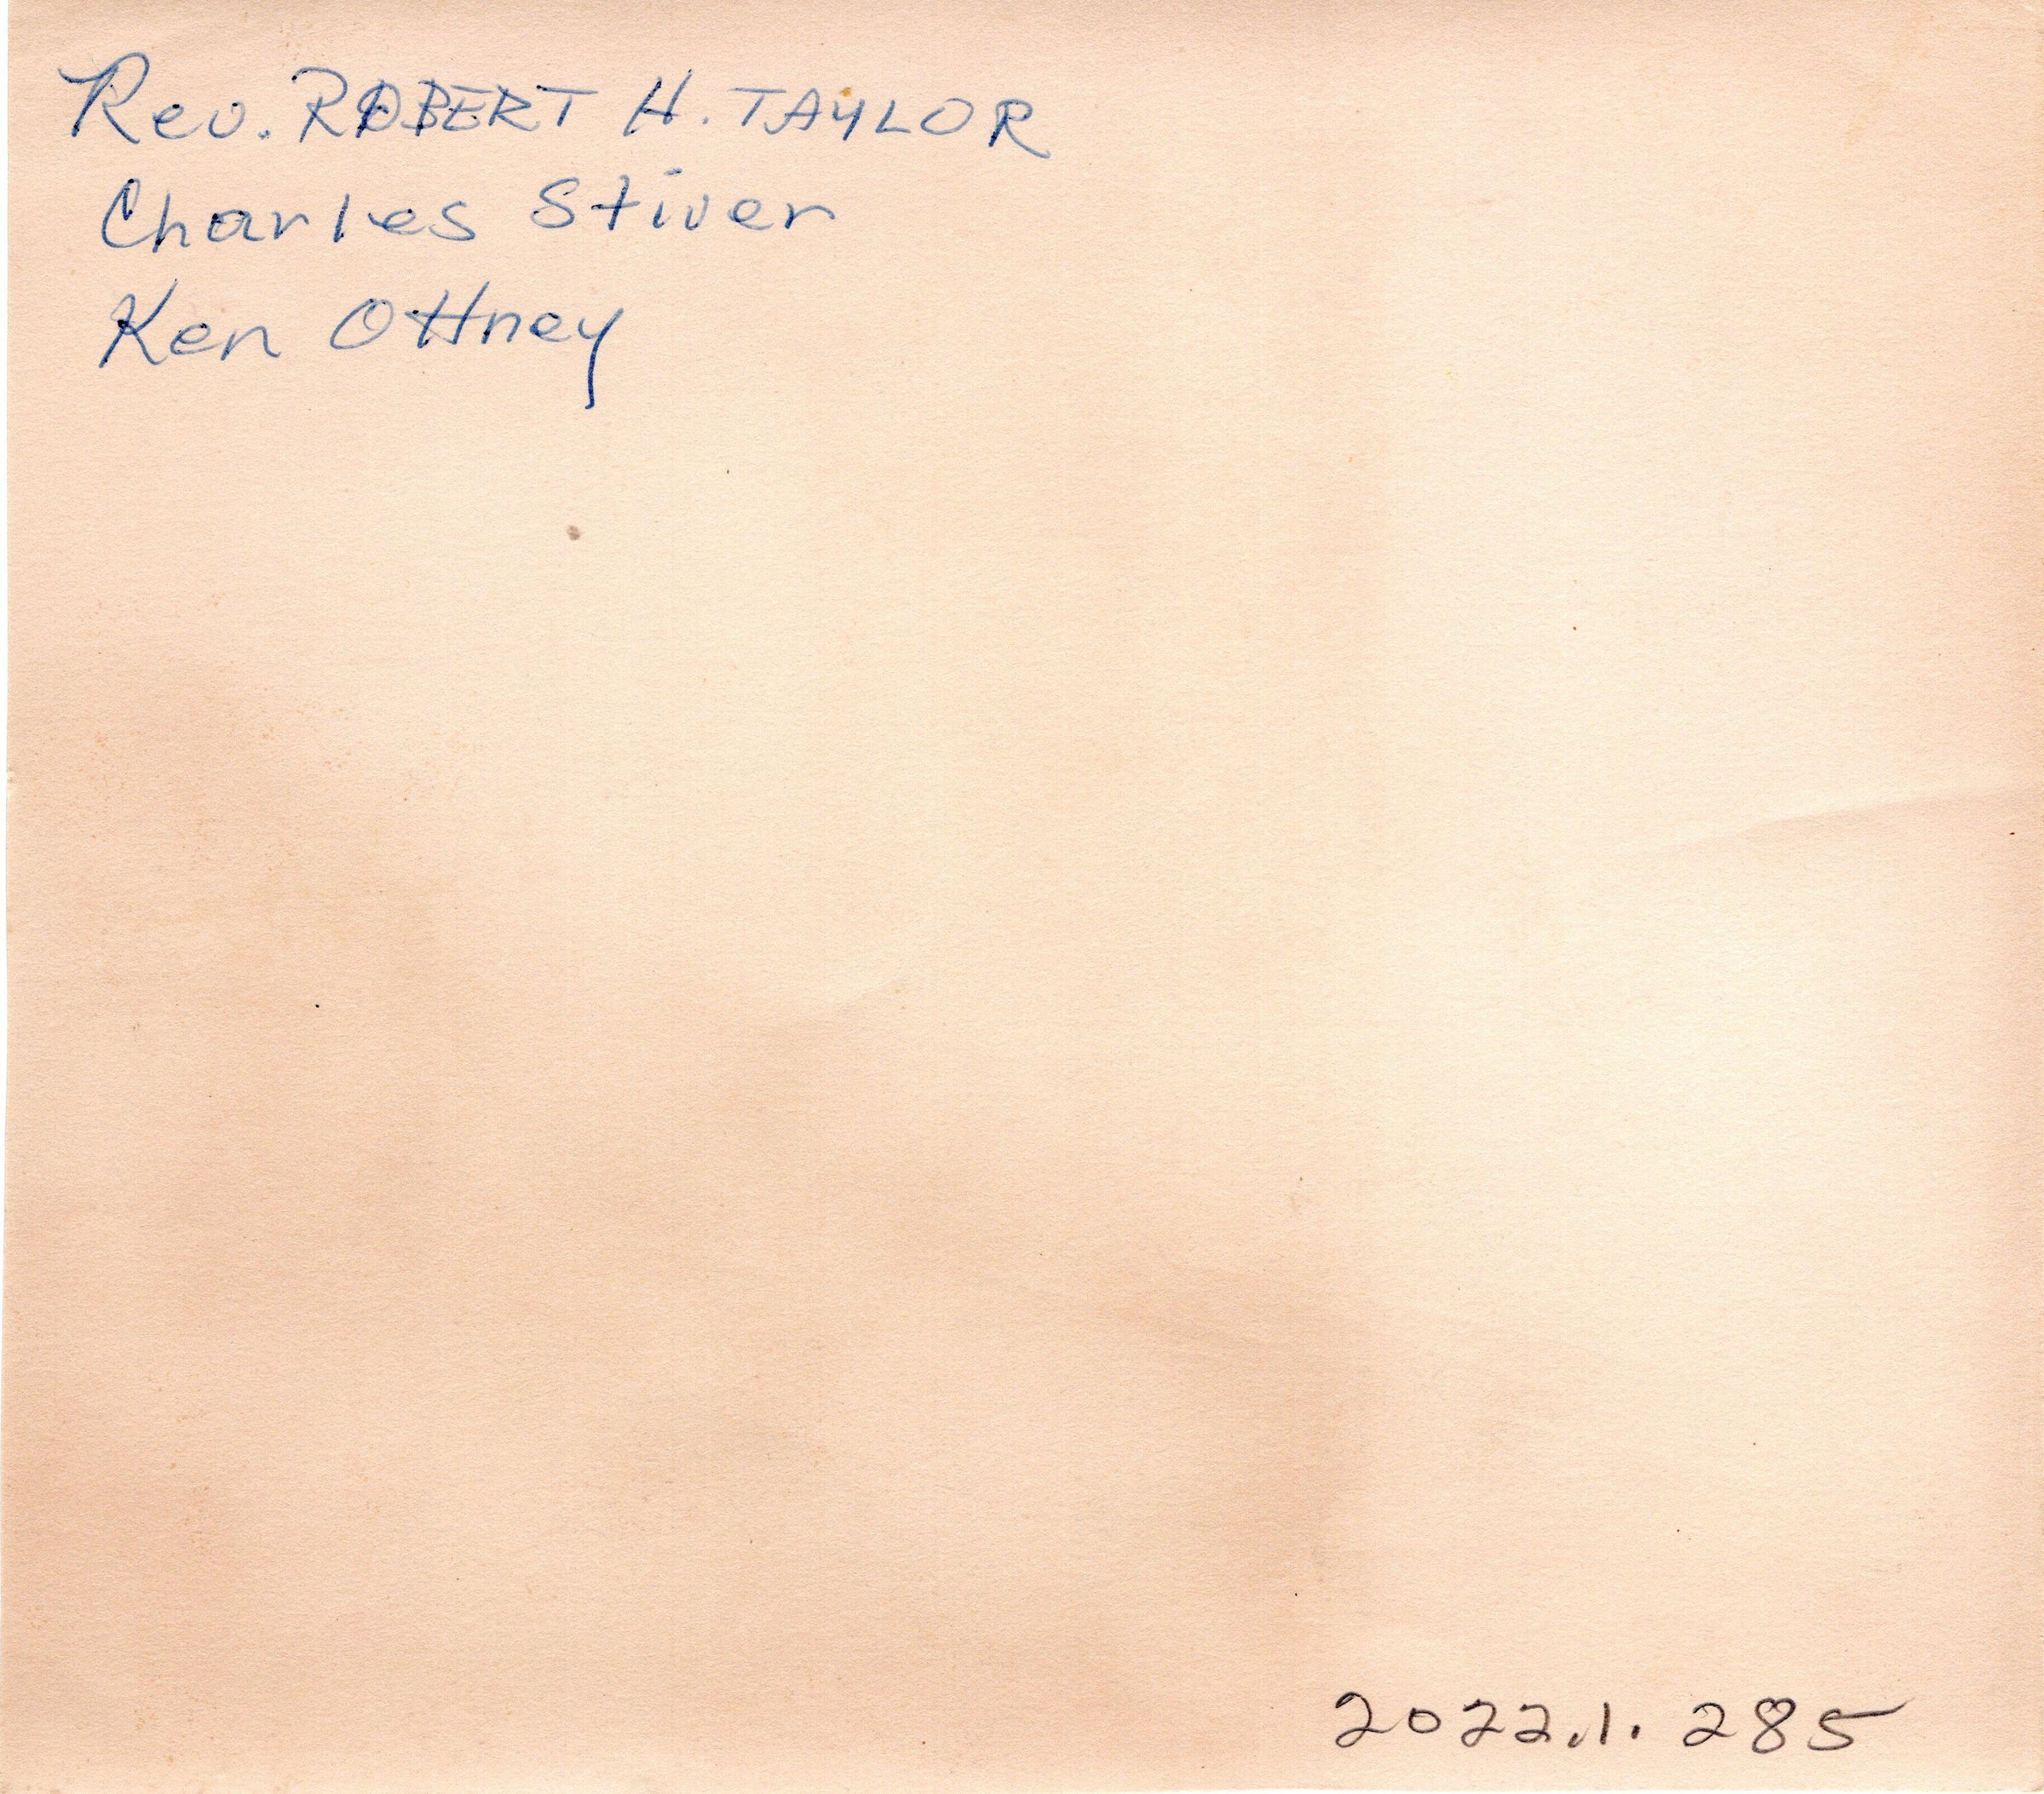 Rev. ROBERT H. TAYLOR
Charles Stiver
Ken Ottney
2022.1.285